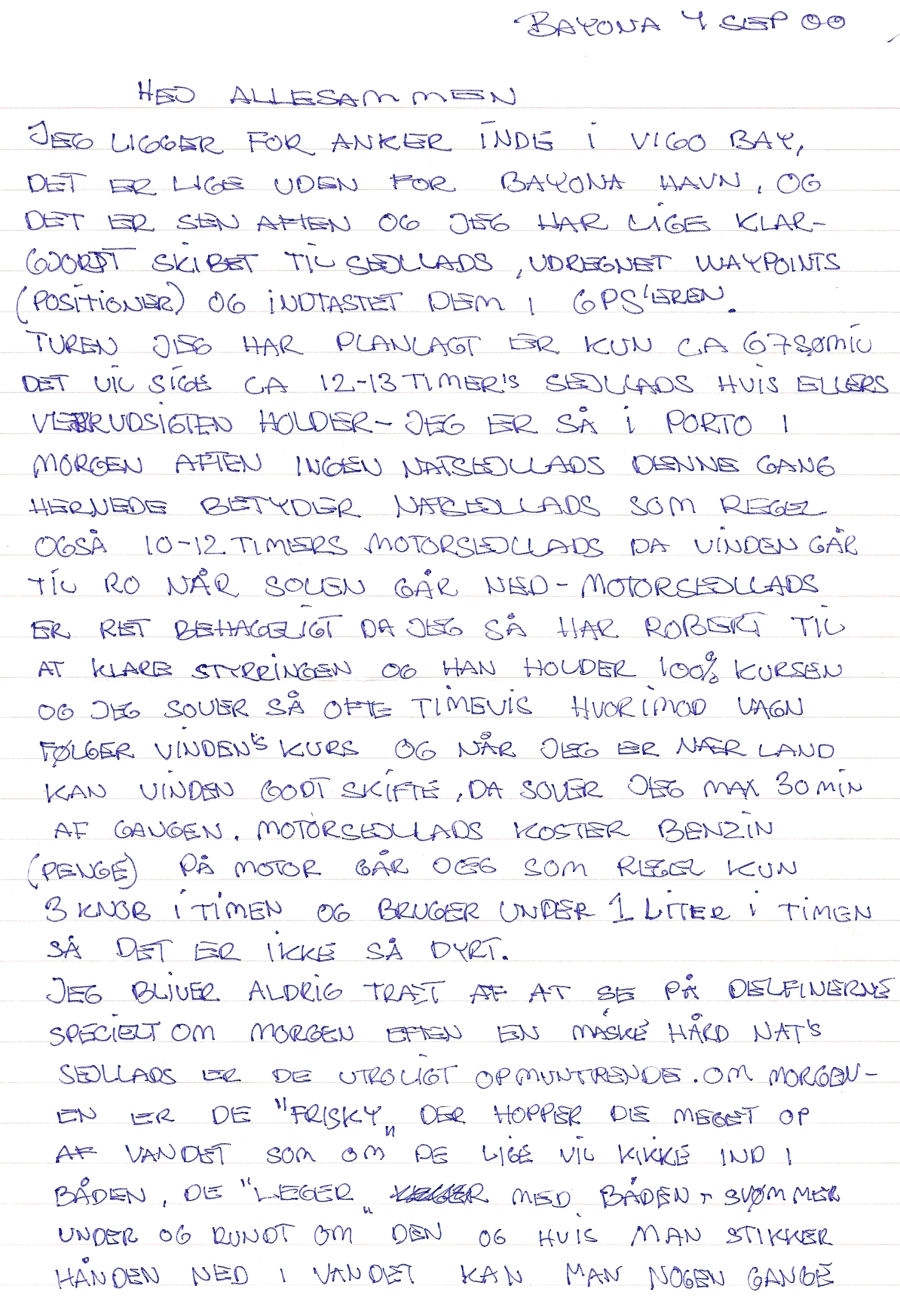 BAYONA 4 SEP 00
HEJ ALLESAMMEN
JEG LIGGER FOR ANKER INDE I VIGO BAY,
DET ER LIGE UDEN FOR BAYONA HAVN, OG
DET ER SEN AFTEN OG JEG HAR LIGE KLAR-
GJORDT SKIBET TIL SEJLLADS, UDREGNET WAYPOINTS
(POSITIONER) OG INDTASTET DEM I GPS'EREN.
TUREN JEG HAR PLANLAGT ER KUN CA 67 SØMIL
DET VIL SIGE CA 12-13 TIMER'S SEJLLADS HVIS ELLERS
VEJRUDSIGTEN HOLDER- JEG ER SÅ I PORTO I
MORGEN AFTEN INGEN NATSEJLLADS DENNE GANG
HERNEDE BETYDER NATSEJLLADS SOM REGEL
OGSÅ 10-12 TIMERS MOTORSEJLLADS DA VINDEN GÅR
TIL RO NÅR SOLEN GÅR NED- MOTORSEJLLADS
ER RET BEHAGELIGT DA JEG SÅ HAR ROBERT TIL
AT KLARE STYRRINGEN OG HAN HOLDER 100% KURSEN
OG JEG SOVER SÅ OFTE TIMEVIS HVORIMOD VAGN
FØLGER VINDEN'S KURS OG NÅR JEG ER NÆR LAND
KAN VINDEN GODT SKIFTE, DA SOVER JEG MAX 30 MIN
AF GANGEN. MOTORSEJLLADS KOSTER BENZIN
(PENGE) PÅ MOTOR GÅR JEG SOM REGEL KUN
3 KNOB I TIMEN OG BRUGER UNDER 1 LITER I TIMEN
SÅ DET ER IKKE SÅ DYRT.
JEG BLIVER ALDRIG TRÆT AF AT SE PÅ DELFINERNE
SPECIELT OM MORGEN EFTEN EN MÅSKE HÅRD NAT'S
SEJLLADS ER DE UTROLIGT OPMUNTRENDE. OM MORGEN-
EN ER DE "FRISKY" DER HOPPER DE MEGET OP
AF VANDET SOM OM DE LIGE VIL KIKKE IND I
BÅDEN, DE "LEGER" MED BÅDEN - SVØMMER
UNDER OG RUNDT OM DEN OG HVIS MAN STIKKER
HÅNDEN NED I VANDET KAN MAN NOGEN GANGE